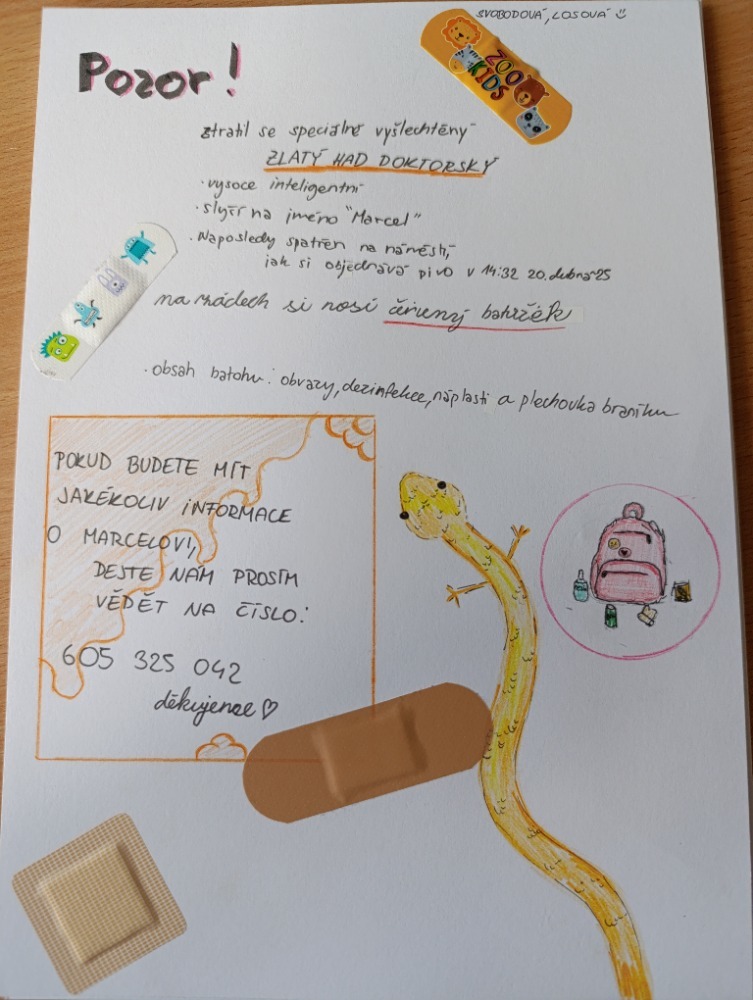 SVOBODOVÁ, LOSOVÁ
Pozor!
ZOO
KIDS
ztratil se speciálně vyšlechtěný
ZLATÝ HAD DOKTORSKÝ
· vysoce inteligentní
· slyší na jméno "Marcel"
· Naposledy spatřen na náměstí,
jak si objednává pivo v 14:32 20. dubna 25
na zádech si nosí červený batůžek
· obsah batohu: obvazy, dezinfekce, náplasti a plechovka braníku
POKUD BUDETE MÍT
JAKÉKOLIV INFORMACE
O MARCELOVI,
DEJTE NÁM PROSÍM
VĚDĚT NA ČÍSLO:
605 325 042
děkujeme ♡